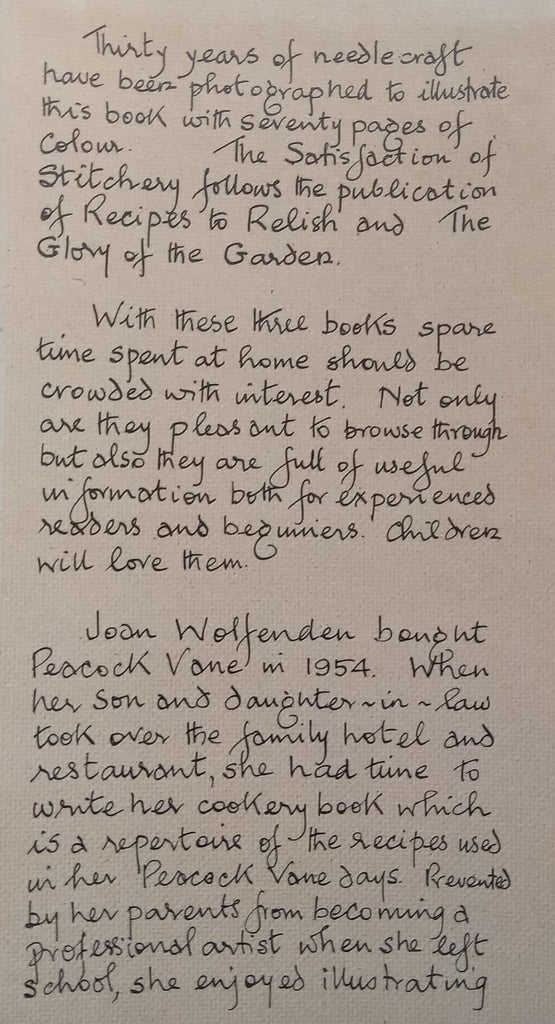 Thirty years of needlecraft
have been photographed to illustrate
this book with seventy pages of
Colour. The Satisfaction of
Stitchery follows the publication
of Recipes to Relish and The
Glory of the Garden.
With these three books spare
time spent at home should be
crowded with interest. Not only
are they pleasant to browse through
but also they are full of useful
information both for experienced
readers and beginners. Children
will love them.
Joan Wolfenden bought
Peacock Vane in 1954. When
her son and daughter~in~law
took over the family hotel and
restaurant, she had time to
write her cookery book which
is a repertoire of the recipes used
in her Peacock Vane days. Prevented
by her parents from becoming a
professional artist when she left
school, she enjoyed illustrating